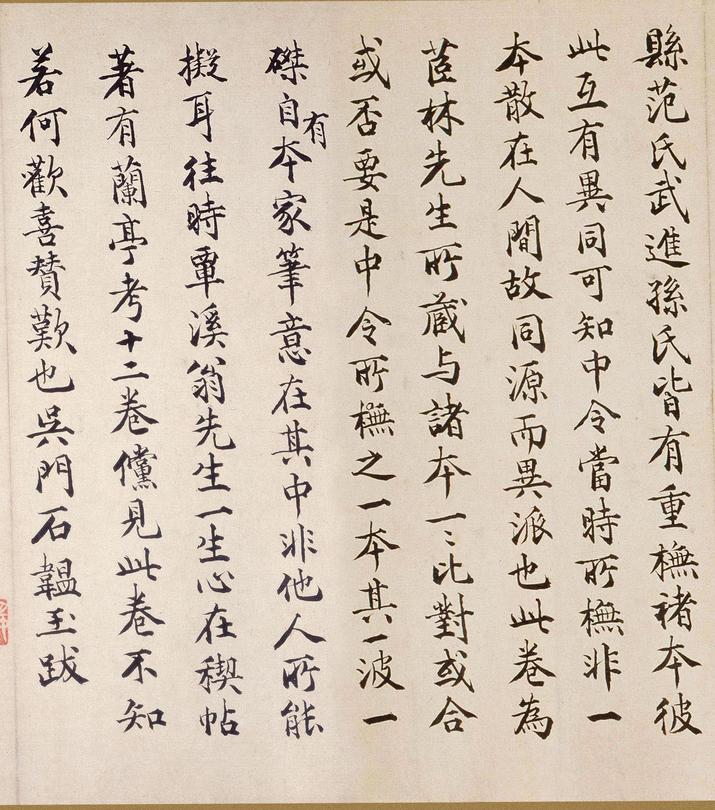 縣范氏武進孫氏皆有重橅褚本彼
此互有異同可知中令當時所橅非一
本散在人間故同源而異派也此卷為
茝林先生所藏与諸本一〻比對或合
或否要是中令所橅之一本其一波一
磔自有本家筆意在其中非他人所能
擬耳往時覃溪翁先生一生心在稧帖
著有蘭亭考十二卷儻見此卷不知
若何歡喜贊歎也吳門石韞玉跋